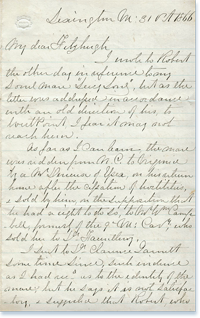 Lexington Va: 31 Oct 1866
My dear Fitzhugh
I wrote to Robert
the other day in reference to my
Sorrel mare "Lucy Long", but as the
letter was addressed in accordance
with an old direction of his, to
West Point I fear it may not
reach him.
As far as I can learn, the mare
was ridden from N. C. to Virginia
by a Mr of Essex, on his return
home after the cessation of hostilities,
& sold by him, on the supposition that
he had a right to do so, to
, formerly of the 9th Va: Cavy who
sold her to Dr. Gauntley.
I sent to Dr.
some time since, such evidence
as I had as to the identity of the
mare, but he says it is not satisfac
tory, & suggested that Robert, who